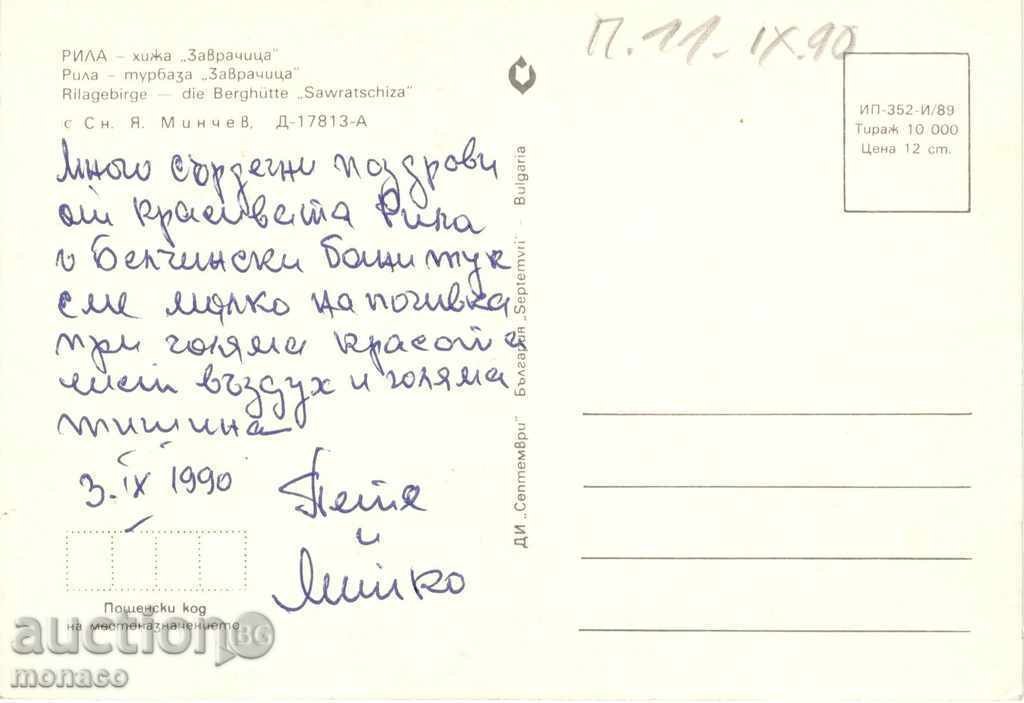 РИЛА – хижа „Заврачица"
Рила – турбаза „Заврачица"
Rilagebirge — die Berghütte „Sawratschiza"
с Сн. Я. Минчев, Д-17813-А
Много сърдечни поздрави
от красивата Рила
и Белчински бани тук
сме малко на почивка
при голяма красота
чист въздух и голяма
тишина
3. IX 1990
Петя
и
Митко
Пощенски код
на местоназначението
ДИ „Септември" България „Septemvri" - Bulgaria
П. 11. IX. 90
ИП-352-И/89
Тираж 10 000
Цена 12 ст.
auction BG
monaco